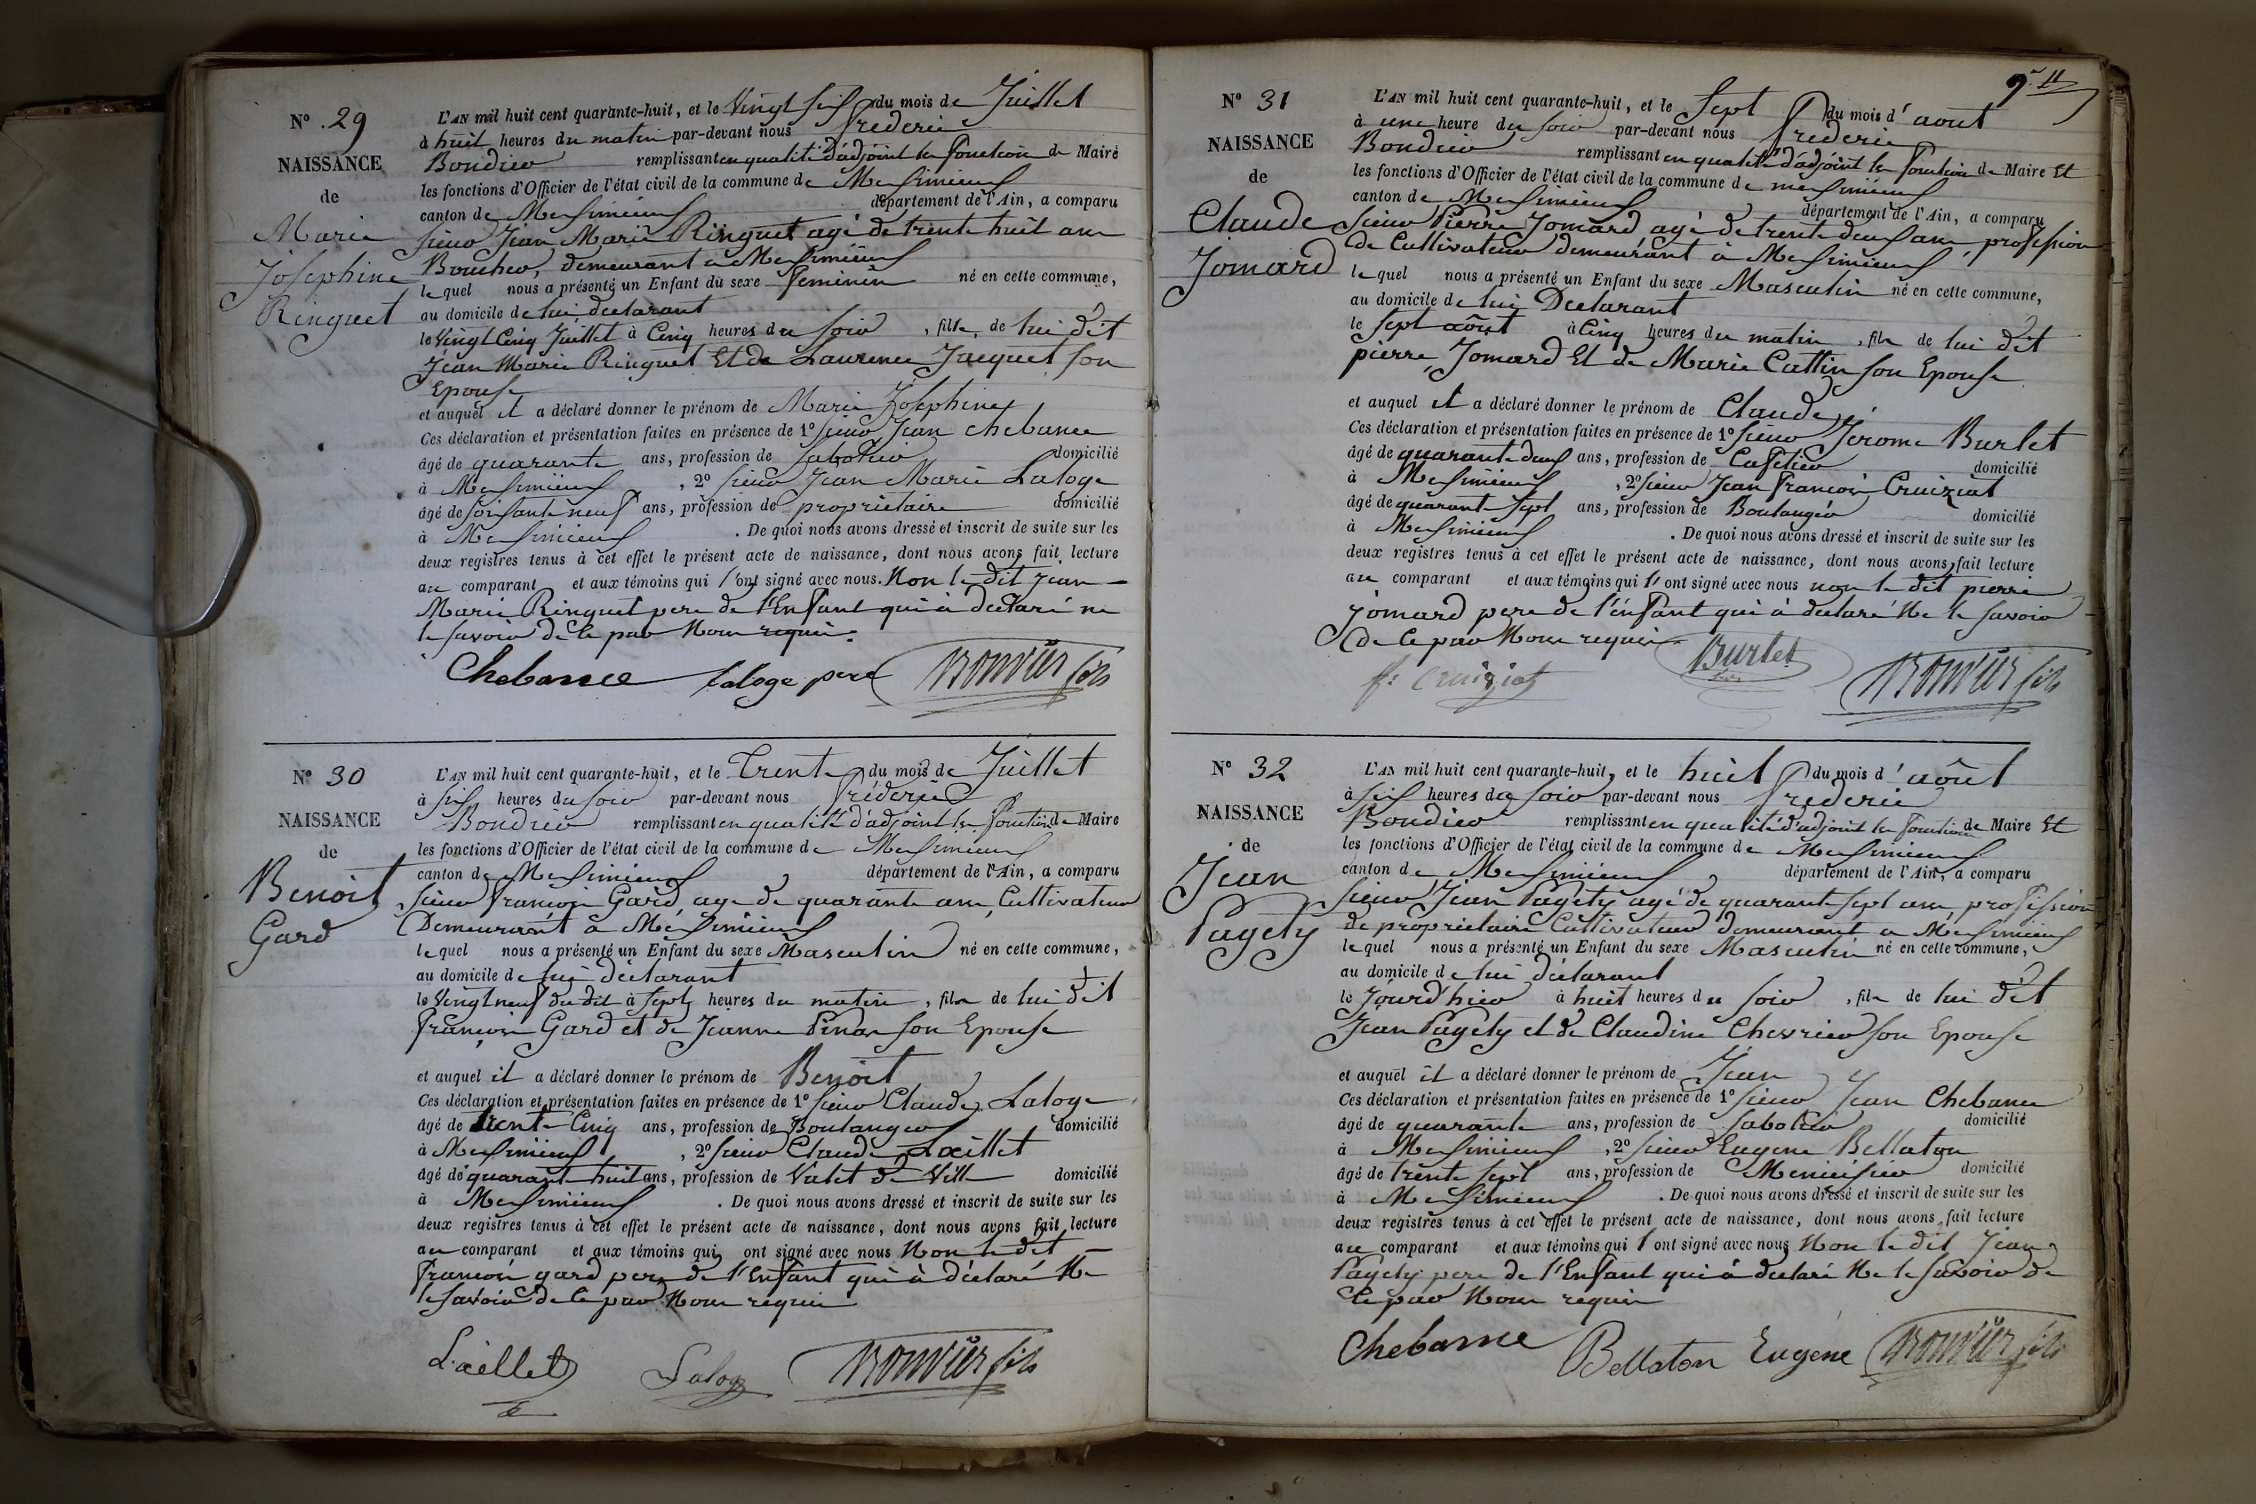 N° 29
NAISSANCE
de
Marie
Josephine
Ringuet
L'AN mil huit cent quarante-huit, et le Vingt six du mois de Juillet
à huit heures du matin par-devant nous frederic
Bondier remplissant en qualité d'adjoint les fonction de Maire
les fonctions d'Officier de l'état civil de la commune de Messimieux
canton de Messimieux département de l'Ain, a comparu
sieur Jean Marie Ringuet agé de trente huit ans
Boucher, demeurant à Messimieux
lequel nous a présenté un Enfant du sexe feminin né en cette commune,
au domicile de lui déclarant
le Vingt Cinq Juillet à Cinq heures du soir, fille de lui dit
Jean Marie Ringuet Et de Laurence Jacquet son
Epouse
et auquel il a déclaré donner le prénom de Marie Josephine
Ces déclaration et présentation faites en présence de 1° sieur Jean Chebance
âgé de quarante ans, profession de sabotier domicilié
à Messimieux, 2° sieur Jean Marie Laloge
âgé de soixante neuf ans, profession de propriétaire domicilié
à Messimieux. De quoi nous avons dressé et inscrit de suite sur les
deux registres tenus à cet effet le présent acte de naissance, dont nous avons fait lecture
au comparant et aux témoins qui l'ont signé avec nous. Non le dit jean
Marie Ringuet pere de l'Enfant qui à déclaré ne
le savoir de ce par Nous requis.
Chebance laloge pere
fils
N° 30
NAISSANCE
de
Benoit
Gard
L'AN mil huit cent quarante-huit, et le Trente du mois de Juillet
à six heures du soir par-devant nous frédéric
Bondier remplissant en qualité d'adjoint les fonction de Maire
les fonctions d'Officier de l'état civil de la commune de Messimieux
canton de Messimieux département de l'Ain, a comparu
sieur françois Gard age de quarante ans, Cultivateur
Demeurant à Messimieux
lequel nous a présenté un Enfant du sexe Masculin né en cette commune,
au domicile de lui déclarant
le Vingt neuf du dit à sept heures du matin, fils de lui dit
françois Gard et de Jeanne Pinar son Epouse
et auquel il a déclaré donner le prénom de Benoit
Ces déclaration et présentation faites en présence de 1° sieur Claude Laloge
âgé de trente Cinq ans, profession de Boulanger domicilié
à Messimieux, 2° sieur Claude Laillet
âgé de quarante huit ans, profession de Valet de Ville domicilié
à Messimieux. De quoi nous avons dressé et inscrit de suite sur les
deux registres tenus à cet effet le présent acte de naissance, dont nous avons fait lecture
au comparant et aux témoins qui ont signé avec nous Non le dit
françois gard pere de l'Enfant qui à déclaré Ne
le savoir de ce par Nous requis
Laillet Laloge
fils
9
N° 31
NAISSANCE
de
Claude
Jomard
L'AN mil huit cent quarante-huit, et le Sept du mois d'aout
à une heure du soir par-devant nous frederic
Bondier remplissant en qualité d'adjoint les fonction de Maire Et
les fonctions d'Officier de l'état civil de la commune de messimieux
canton de Messimieux département de l'Ain, a comparu
sieur Pierre Jomard agé de trente deux ans, profession
de Cultivateur demeurant à Messimieux
lequel nous a présenté un Enfant du sexe Masculin né en cette commune,
au domicile de lui Declarant
le sept août à Cinq heures du matin, fils de lui dit
pierre Jomard Et de Marie Cattin son Epouse
et auquel il a déclaré donner le prénom de Claude
Ces déclaration et présentation faites en présence de 1° sieur Jerome Burlet
âgé de quarante deux ans, profession de Cafetier domicilié
à Messimieux, 2° sieur Jean françois Cruiziat
âgé de quarante sept ans, profession de Boulanger domicilié
à Messimieux. De quoi nous avons dressé et inscrit de suite sur les
deux registres tenus à cet effet le présent acte de naissance, dont nous avons fait lecture
au comparant et aux témoins qui l'ont signé avec nous non le dit pierre
jomard pere de l'énfant qui à déclaré Ne le savoir
de ce par Nous requis
f: Cruiziat Burlet
fils
N° 32
NAISSANCE
de
Jean
Pagety
L'AN mil huit cent quarante-huit, et le huit du mois d'août
à six heures du soir par-devant nous frederic
Bondier remplissant en qualité d'adjoint les fonction de Maire Et
les fonctions d'Officier de l'état civil de la commune de Messimieux
canton de Messimieux, département de l'Ain, a comparu
sieur Jean Pagety agé de quarante sept ans, profession
de propriétaire Cultivateur demeurant à Messimieux
lequel nous a présenté un Enfant du sexe Masculin né en cette commune,
au domicile de lui déclarant
le Jourd'hier à huit heures du soir, fils de lui dit
Jean Pagety et de Claudine Chevrier son Epouse
et auquel il a déclaré donner le prénom de Jean
Ces déclaration et présentation faites en présence de 1° sieur Jean Chebance
âgé de quarante ans, profession de sabotier domicilié
à Messimieux, 2° sieur Eugene Bellaton
âgé de trente sept ans, profession de Menuisier domicilié
à Messimieux. De quoi nous avons dressé et inscrit de suite sur les
deux registres tenus à cet effet le présent acte de naissance, dont nous avons fait lecture
au comparant et aux témoins qui l'ont signé avec nous Non le dit Jean
Pagety pere de l'Enfant qui à déclaré Ne le savoir de
ce par Nous requis
Chebance Bellaton Eugéne
fils